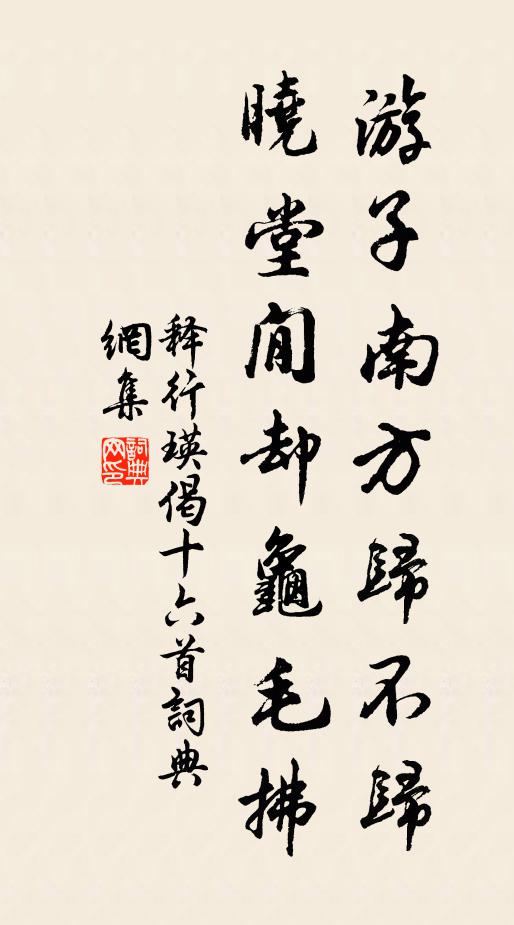 游子南方歸不歸
曉堂閒却龜毛拂
释行瑛偈十六首詞典
網集
詞典网印